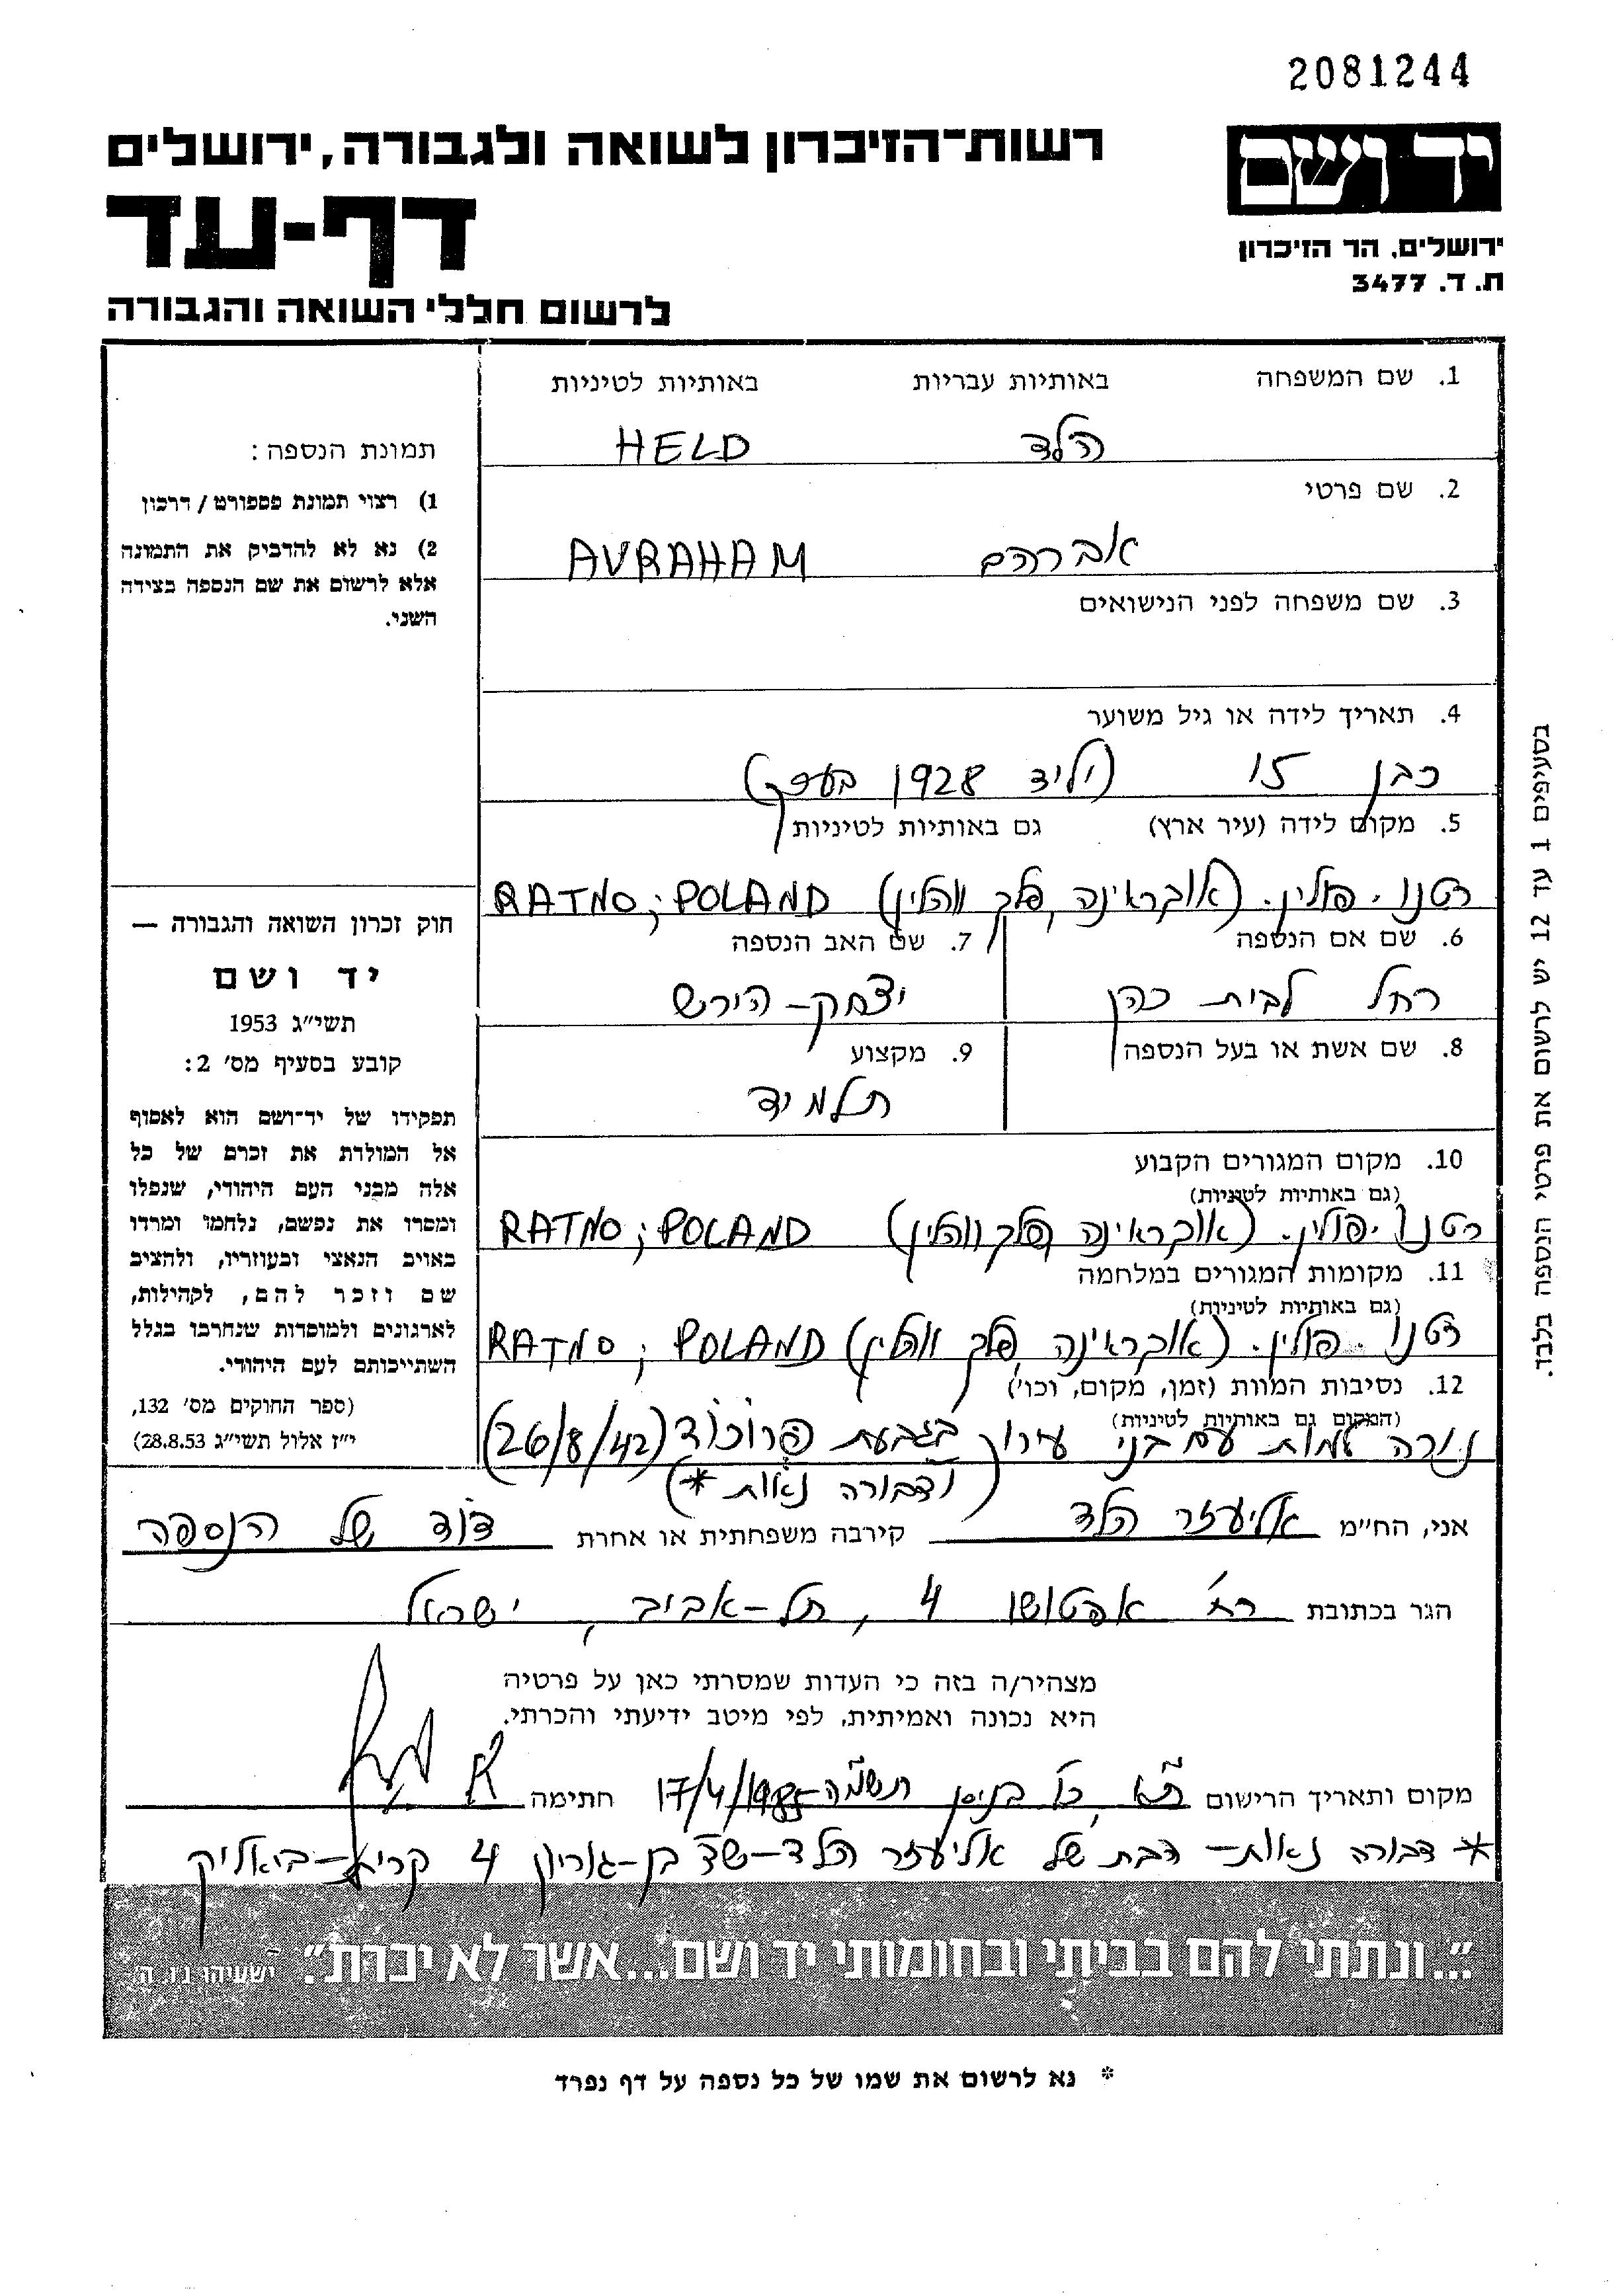 2081244
יד ושם
רשות־הזיכרון לשואה ולגבורה, ירושלים
דף-עד
ירושלים, הר הזיכרון
ת. ד. 3477
לרשום חללי השואה והגבורה
1. שם המשפחה באותיות עבריות באותיות לטיניות
הלד HELD
2. שם פרטי
אברהם AVRAHAM
3. שם משפחה לפני הנישואים
4. תאריך לידה או גיל משוער
כבן 15 (יליד 1928 בערך)
5. מקום לידה (עיר ארץ) גם באותיות לטיניות
רטנו. פולין. (אוקראינה, פלך ווהלין) RATNO; POLAND
6. שם אם הנספה 7. שם האב הנספה
רחל לבית כהן יצחק-הירש
8. שם אשת או בעל הנספה 9. מקצוע
תלמיד
10. מקום המגורים הקבוע
(גם באותיות לטיניות)
רטנו. פולין. (אוקראינה פלך ווהלין) RATNO; POLAND
11. מקומות המגורים במלחמה
(גם באותיות לטיניות)
רטנו. פולין. (אוקראינה, פלך ווהלין) RATNO; POLAND
12. נסיבות המוות (זמן, מקום, וכו')
(המקום גם באותיות לטיניות)
נורה למות עם בני עירו בגבעת פרוכוד (26/8/42)
(ודבורה נאות *)
תמונת הנספה:
1) רצוי תמונת פספורט / דרכון
2) נא לא להדביק את התמונה
אלא לרשום את שם הנספה בצידה
השני.
חוק זכרון השואה והגבורה —
יד ושם
תשי״ג 1953
קובע בסעיף מס׳ 2:
תפקידו של יד־ושם הוא לאסוף
אל המולדת את זכרם של כל
אלה מבני העם היהודי, שנפלו
ומסרו את נפשם, נלחמו ומרדו
באויב הנאצי ובעוזריו, ולהציב
שם וזכר להם, לקהילות,
לארגונים ולמוסדות שנחרבו בגלל
השתייכותם לעם היהודי.
(ספר החוקים מס׳ 132,
י״ז אלול תשי״ג 28.8.53)
בסעיפים 1 עד 12 יש לרשום את פרטי הנספה בלבד.
אני, הח״מ אליעזר הלד קירבה משפחתית או אחרת דוד של הנספה
הגר בכתובת רח׳ אפטושו 4, תל-אביב, ישראל
מצהיר/ה בזה כי העדות שמסרתי כאן על פרטיה
היא נכונה ואמיתית, לפי מיטב ידיעתי והכרתי.
מקום ותאריך הרישום ת״א, כ״ו בניסן תשמ״ה-17/4/1985 חתימה
* דבורה נאות- הבת של אליעזר הלד-שד׳ בן-גוריון 4 קרית-ביאליק
״...ונתתי להם בביתי ובחומותי יד ושם...אשר לא יכרת״. ישעיהו נ״ו, ה׳
* נא לרשום את שמו של כל נספה על דף נפרד